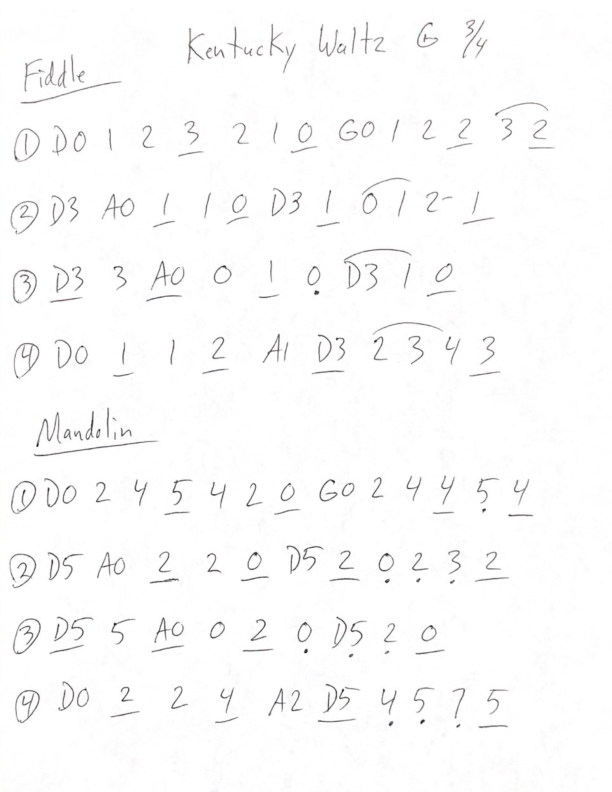 Kentucky Waltz G 3/4
Fiddle
① D0 1 2 3 2 1 0 G0 1 2 2 3 2
② D3 A0 1 1 0 D3 1 0 1 2- 1
③ D3 3 A0 0 1 0 D3 1 0
④ D0 1 1 2 A1 D3 2 3 4 3
Mandolin
① D0 2 4 5 4 2 0 G0 2 4 4 5 4
② D5 A0 2 2 0 D5 2 0 2 3 2
③ D5 5 A0 0 2 0 D5 2 0
④ D0 2 2 4 A2 D5 4 5 7 5